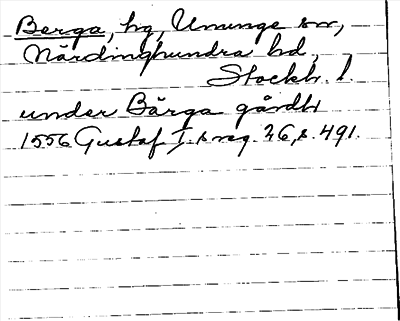 Berga, hg, Ununge sn,
Närdinghundra hd,
Stockh. l.
under Bärga gårdh
1556 Gustaf I:s reg. 26, s. 491.